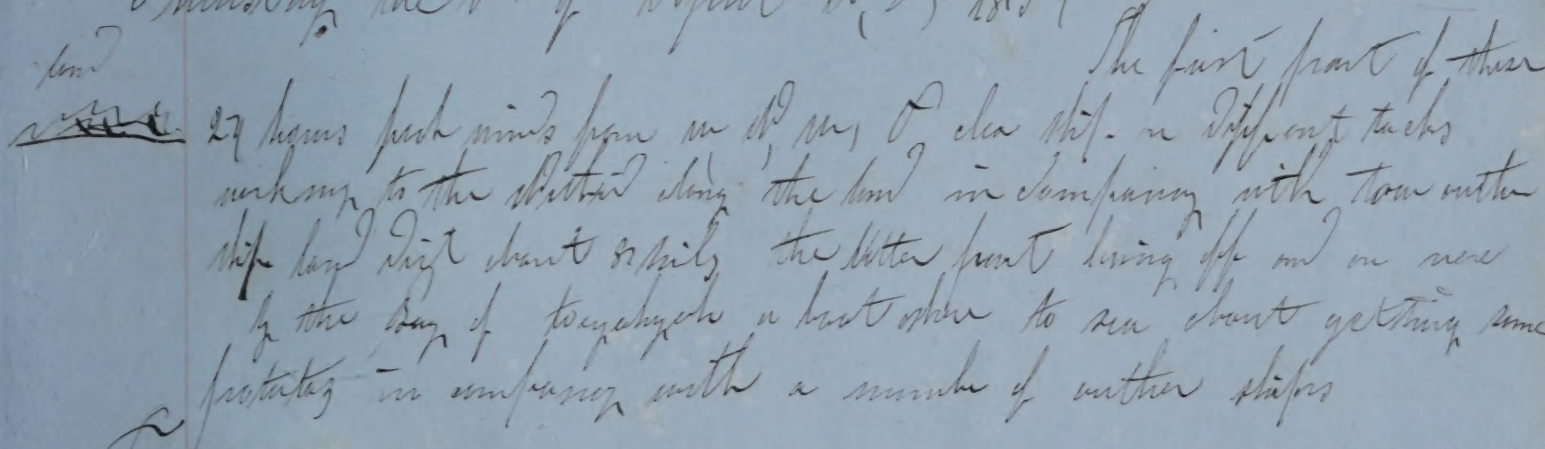 the of
land
The first part of these
24 hours fresh winds from clear ship on Diffront tacks
working to the along the land in Company with tow outher
ship land Dist about 8 miles the latter part laying off and on nere
by the Bay of a boat ashore to see about getting some
potatoz in company with a number of outher ships